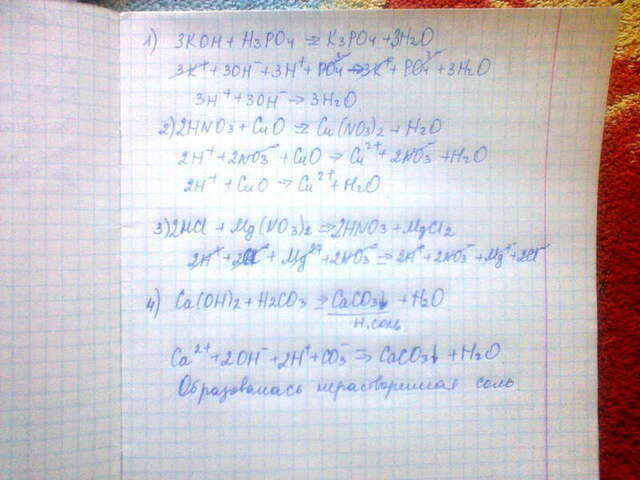 1) 3KOH + H3PO4 ⇒ K3PO4 + 3H2O
3K⁺ + 3OH⁻ + 3H⁺ + PO4³⁻ ⇒ 3K⁺ + PO4³⁻ + 3H2O
3H⁺ + 3OH⁻ ⇒ 3H2O
2) 2HNO3 + CuO ⇒ Cu(NO3)2 + H2O
2H⁺ + 2NO3⁻ + CuO ⇒ Cu²⁺ + 2NO3⁻ + H2O
2H⁺ + CuO ⇒ Cu²⁺ + H2O
3) 2HCl + Mg(NO3)2 ⇒ 2HNO3 + MgCl2
2H⁺ + 2Cl⁻ + Mg²⁺ + 2NO3⁻ ⇒ 2H⁺ + 2NO3⁻ + Mg²⁺ + 2Cl⁻
4) Ca(OH)2 + H2CO3 ⇒ CaCO3↓ + H2O
Н. соль
Ca²⁺ + 2OH⁻ + 2H⁺ + CO3⁻ ⇒ CaCO3↓ + H2O
Образовалась нерастворимая соль